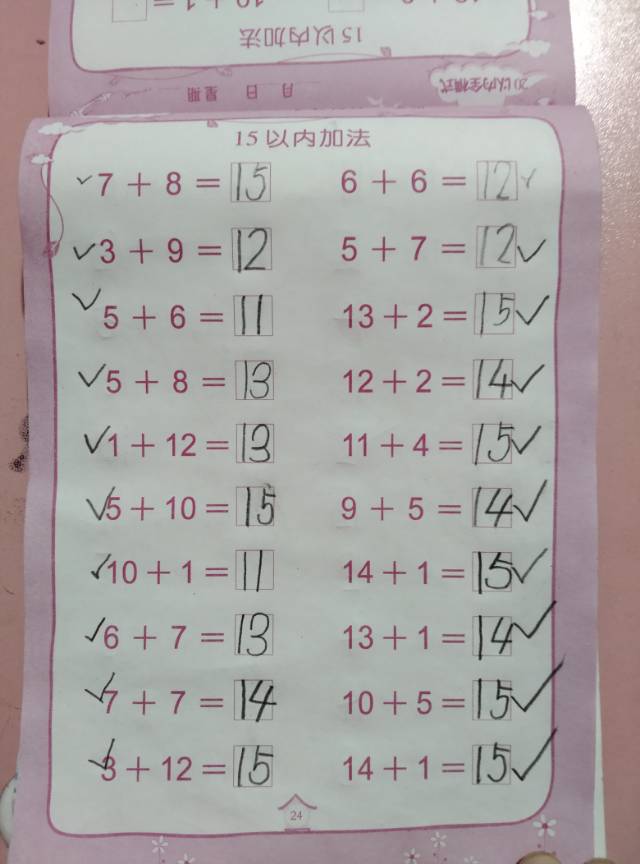 15以内加法
月 日 星期
20以内全横式
15以内加法
7 + 8 = 15 6 + 6 = 12
3 + 9 = 12 5 + 7 = 12
5 + 6 = 11 13 + 2 = 15
5 + 8 = 13 12 + 2 = 14
1 + 12 = 13 11 + 4 = 15
5 + 10 = 15 9 + 5 = 14
10 + 1 = 11 14 + 1 = 15
6 + 7 = 13 13 + 1 = 14
7 + 7 = 14 10 + 5 = 15
3 + 12 = 15 14 + 1 = 15
24